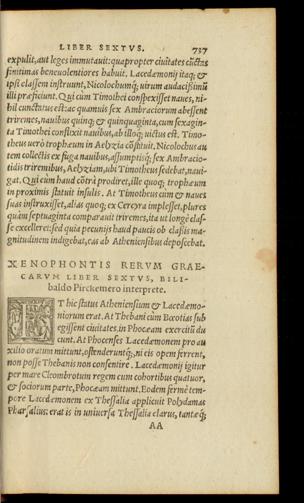 LIBER SEXTVS. 737
expulit, aut leges immutauit: quapropter ciuitates cũctas
finitimas beneuolentiores habuit. Lacedæmonij itaq; &
ipsi classem instruunt, Nicolochumq; uirum audacissimũ
illi præficiunt. Qui cùm Timothei conspexisset naues, ni-
hil cunctatus est: ac quamuis sex Ambraciorum abessent
triremes, nauibus quinq; & quinquaginta, cum sexagin-
ta Timothei conflixit nauibus, ab illoq; uictus est. Timo-
theus uerò trophæum in Aelyzia cõstituit. Nicolochus au
tem collectis ex fuga nauibus, assumptisq; sex Ambracio-
tidis triremibus, Aelyziam, ubi Timotheus sedebat, naui-
gat. Qui cùm haud cõtrà prodiret, ille quoq; trophæum
in proximis statuit insulis. At Timotheus cùm & naues
suas instruxisset, alias quoq; ex Corcyra implesset, plures
quàm septuaginta comparauit triremes, ita ut longè clas-
se excelleret: sed quia pecunijs haud paucis ob classis ma-
gnitudinem indigebat, eas ab Atheniensibus deposcebat.
XENOPHONTIS RERVM GRAE-
CARVM LIBER SEXTVS, BILI-
baldo Pirckemero interprete.
ET hic status Atheniensium & Lacedæmo-
niorum erat. At Thebani cùm Bœotias sub
egissent ciuitates, in Phocæam exercitũ du
cunt. At Phocenses Lacedæmonem pro au
xilio oratum mittunt, ostenderuntq;, ni eis opem ferrent,
non posse Thebanis non consentire. Lacedæmonij igitur
per mare Cleombrotum regem cum cohortibus quatuor,
& sociorum parte, Phocæam mittunt. Eodem fermè tem-
pore Lacedæmonem ex Thessalia applicuit Polydamas
Pharsalius: erat is in uniuersa Thessalia clarus, tantæq;
AA